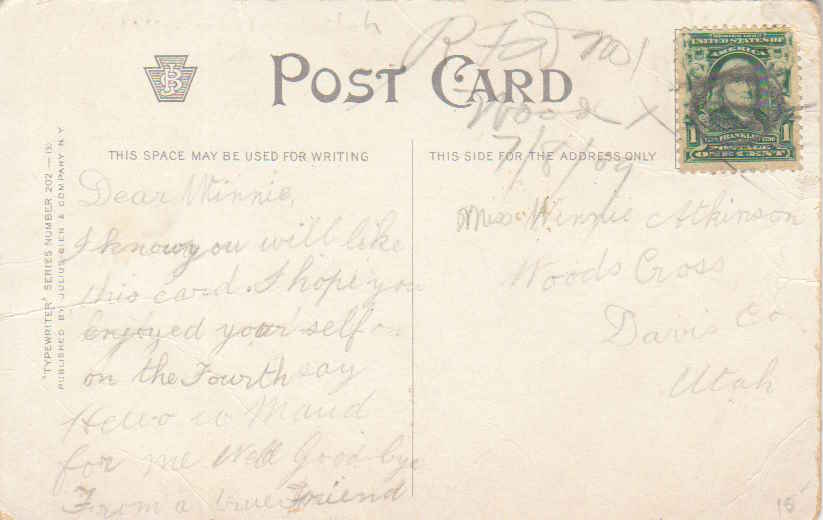 RFD No 1
POST CARD
Wood X
7/8/09
SERIES 1902
UNITED STATES OF
AMERICA
FRANKLIN
1 POSTAGE 1
ONE CENT
THIS SPACE MAY BE USED FOR WRITING
THIS SIDE FOR THE ADDRESS ONLY
"TYPEWRITER" SERIES NUMBER 202 —
PUBLISHED BY JULIUS BIEN & COMPANY N.Y.
Dear Winnie,
I know you will like
this card. I hope you
enjoyed your self
on the Fourth say
Hello to Maud
for me Well Good bye
From a true Friend
Miss Winnie Atkinson
Woods Cross
Davis Co.
Utah
10